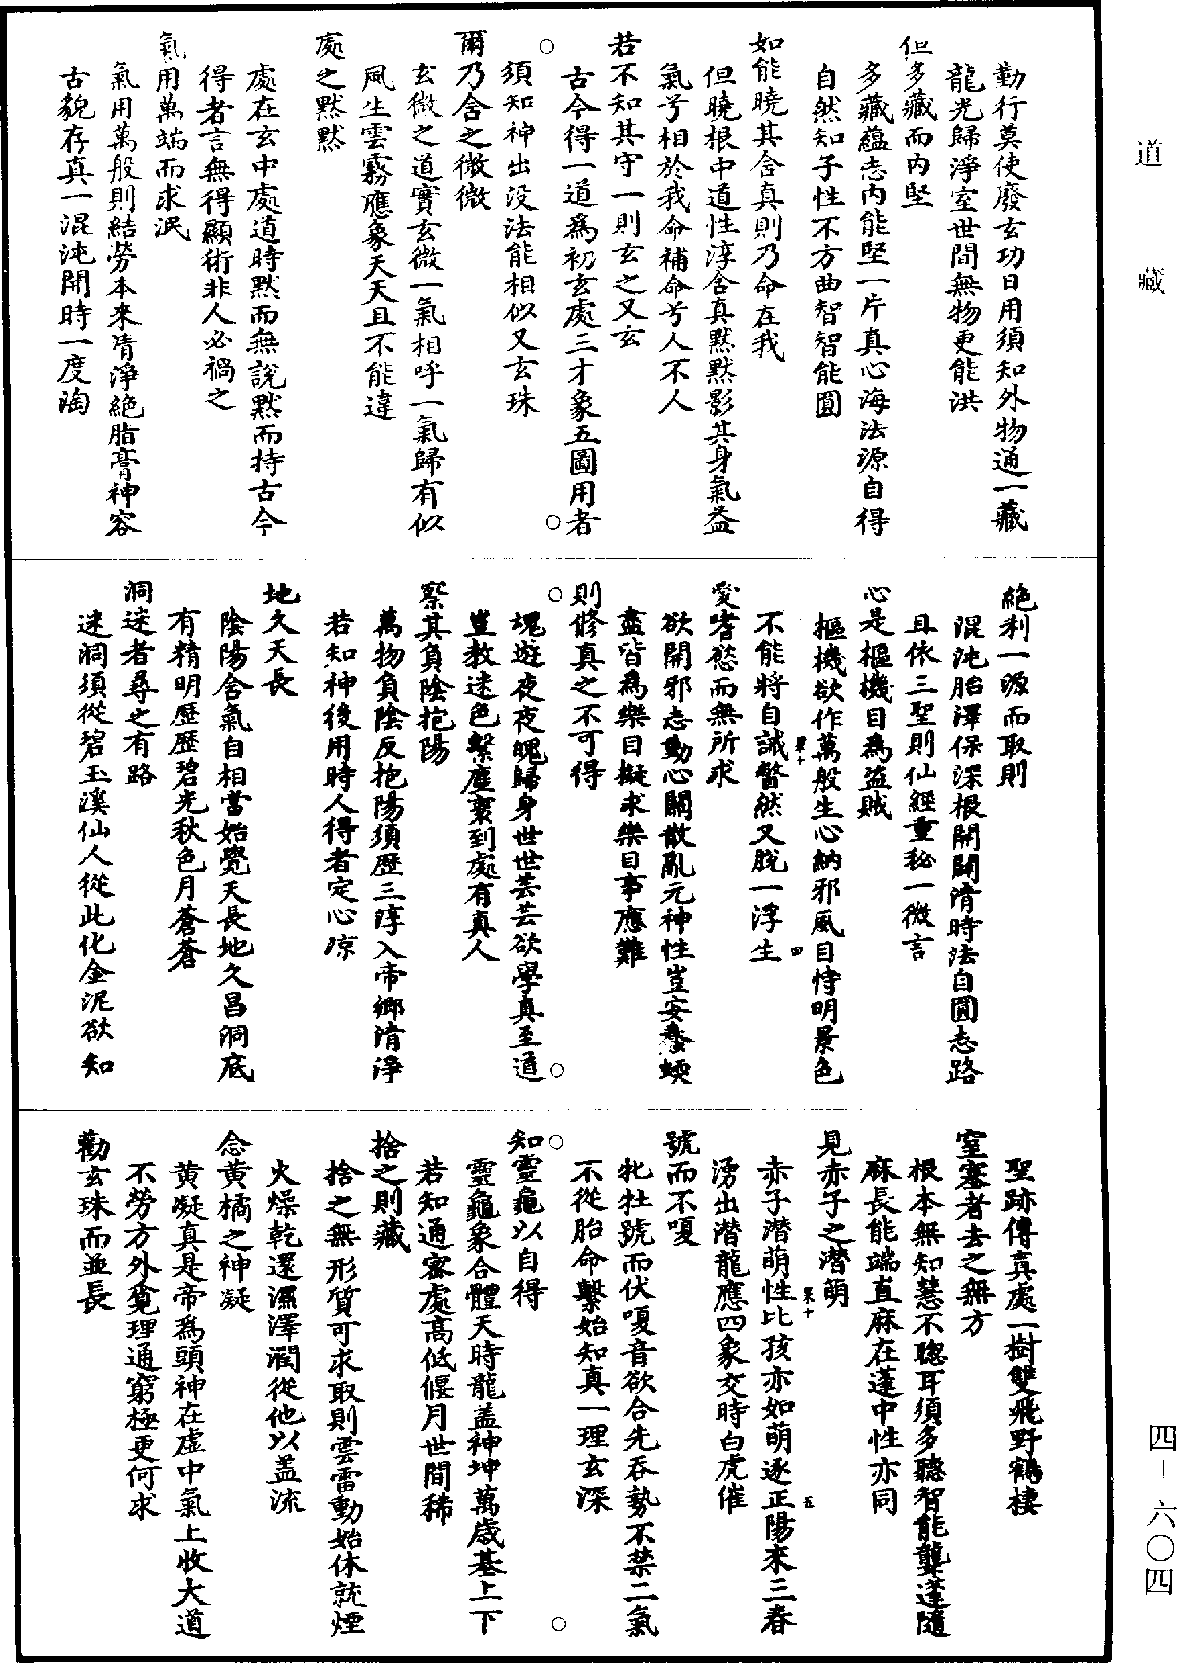 道藏
勤行莫使廢玄功日用須知外物通一藏
龍光歸淨室世間無物更能洪
但多藏而內堅
多藏蘊志內能堅一片真心海法源自得
自然知子性不方曲智智能圓
如能曉其含真則乃命在我
但曉根中道性淳含真默默影其身氣益
氣兮相於我命補命兮人不人
若不知其守一則玄之又玄
古今得一道為初玄處三才象五圖用者
須知神出沒法能相似又玄珠
爾乃含之微微
玄微之道實玄微一氣相呼一氣歸有似
風生雲霧應象天天且不能違
處之默默
處在玄中處道時默而無說默而持古今
得者言無得顯術非人必禍之
氣用萬端而求泯
氣用萬般則結勞本來清淨絕脂膏神容
古貌存真一混沌開時一度陶
絕利一源而取則
混沌胎澤保深根開闢清時法自圓志路
且依三聖則仙經重秘一微言
心是樞機目為盜賊
樞機欲作萬般生心納邪風目恃明景色
不能將自誠瞥然又脫一浮生
愛嗜慾而無所求
欲開邪志動心關散亂元神性豈安蠢蠕
盡皆為樂目擬求樂目事應難
則修真之不可得
塊遊夜夜魄歸身世世芸芸欲學真至道
豈教迷色繫塵裹到處有真人
察其負陰抱陽
萬物負陰反抱陽須歷三淳入帝鄉清淨
若知神後用時人得者定心涼
地久天長
陰陽含氣自相當始覺天長地久昌洞底
有精明歷歷碧光秋色月蒼蒼
洞迷者尋之有路
迷洞須從碧玉溪仙人從此化金泥欲知
聖跡傳真處一樹雙飛野鶴棲
窒塞者去之無方
根本無知慧不聰耳須多聽智能聾蓬隨
麻長能端直麻在蓬中性亦同
見赤子之潛萌
赤子潛萌性比孩亦如萌逐正陽來三春
湧出潛龍應四象交時白虎催
號而不嗄
牝牡號而伏嗄音欲合先吞勢不禁二氣
不從胎命繫始知真一理玄深
知靈龜以自得
靈龜象合體天時龍蓋神坤萬歲基上下
若知通密處高低偃月世間稀
捨之則藏
捨之無形質可求取則雲雷動始休就煙
火燥乾還濕澤潤從他以盖流
念黃橘之神凝
黃凝真是帝為頭神在虛中氣上收大道
不勞方外覓理通窮極更何求
勸玄珠而並長
四－六〇四